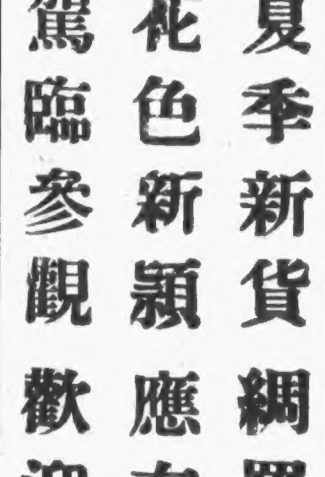 夏季新貨綢
花色新穎應
駕臨參觀歡